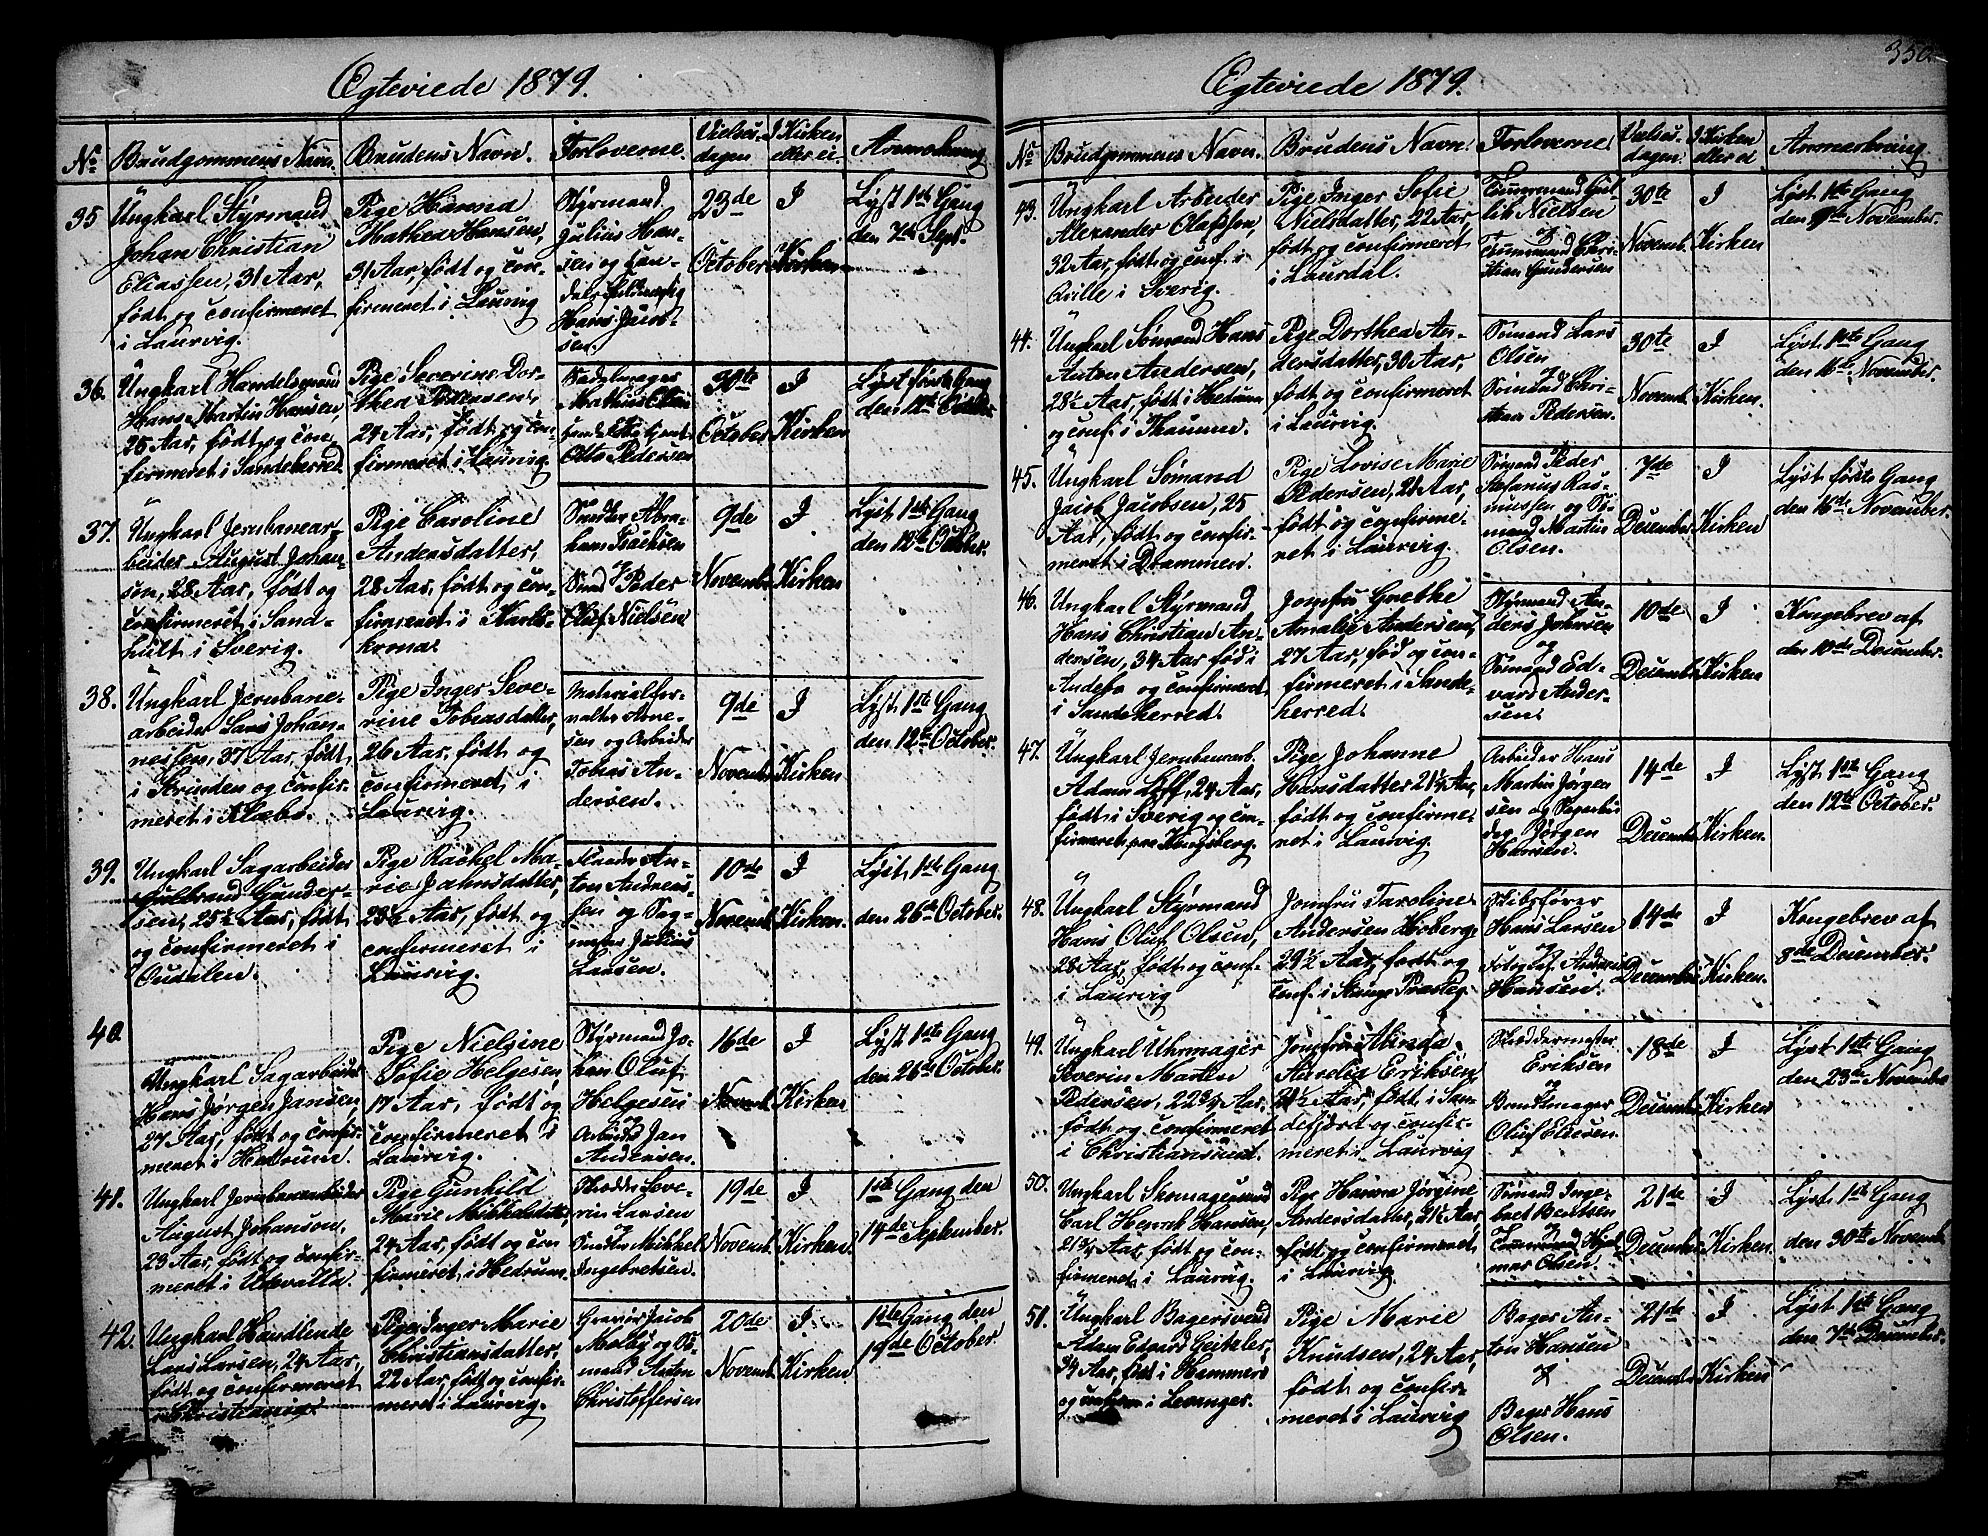 350.
Ægteviede 1879.
No. Brudgommens Navn. Brudens Navn. Forloverne. Vielses-dagen I Kirken eller ei. Anmærkning
35 Ungkarl Styrmand
Johan Christian
Eliassen, 31 Aar,
født og confirmeret
i Laurvig.
Pige Hanna
Mathea Hansen,
31 Aar, født og con-
firmeret i Laurvig
Styrmand
Julius Han-
sen og
Hans Jacob-
sen.
23de
October
I
Kirken
Lyst 1ste Gang
den 7de Sept.
36. Ungkarl Handelsmand
Hans Martin Hansen,
25 Aar, født og con-
firmeret i Sandeherred.
Pige Severine Dor-
thea Pedersen,
24 Aar, født og con-
firmeret i Laurvig.
Sadelmager
Mathias
Otto Pedersen
30te
October
I
Kirken
Lyst første Gang
den 12te October
37. Ungkarl Jernbanear-
beider August Johan-
son, 28 Aar, født og
confirmeret i Sand-
hult i Sverig.
Pige Caroline
Andersdatter,
28 Aar, født og con-
firmeret i Karls-
krona.
Snedker Abra-
ham Isachsen
Peder
Oluf Nielsen
9de
Novemb.
I
Kirken
Lyst 1ste Gang
den 12te October.
38. Ungkarl Jernbane-
arbeider Lars Johan-
nessen, 37 Aar, født
i Strinden og confir-
meret i Klæbo.
Pige Inger Seve-
rine Tobiasdatter,
26 Aar, født og
confirmeret i
Laurvig.
Materialfor-
valter Arne-
sen og Arbeider
Tobias An-
dersen.
9de
Novemb.
I
Kirken
Lyst 1ste Gang
den 12te October.
39. Ungkarl Sagarbeider
Gulbrand Gunder-
sen, 25½ Aar, født
og confirmeret i
Oudalen.
Pige Rachel Ma-
rie Jahnsdatter,
23½ Aar, født og
confirmeret i
Laurvig.
An-
ton Andreas-
sen og Sag-
mester Julius
Larsen.
10de
Novemb.
I
Kirken.
Lyst 1ste Gang
den 26de October.
40.
Ungkarl Sagarbeider
Hans Jørgen Jansen,
27 Aar, født og confir-
meret i Hedrum.
Pige Nielsine
Sofie Helgesen
17 Aar, født og
confirmeret i
Laurvig.
Styrmand Jo-
han Oluf
Helgesen
og
Arbeider Jan
Andersen.
16de
Novemb.
I
Kirken.
Lyst 1ste Gang
den 26de October.
41. Ungkarl Jernbanearbeider
August Johanson,
23 Aar, født og confir-
meret i Udevalla.
Pige Gunhild
Marie Mikkelsdatter,
24 Aar, født og con
firmeret i Hedrum.
Skrædder Seve-
rin Larsen
og
Snedker Mikkel
Ingebretsen.
19de
Novemb.
I
Kirken.
1ste Gang den
14de September.
42. Ungkarl Handlende
Lars Larsen, 24 Aar,
født og confirmeret
i Christiania.
Pige Inger Marie
Christiansdatter,
22 Aar, født og confir-
meret i Laurvig.
Gravør Jacob
Malby og Sø-
mand Anton
Christoffersen
20de
Novemb.
I
Kirken.
1ste Gang den
19de October.
Ægteviede 1879.
No. Brudgommens Navn. Brudens Navn. Forloverne Vielses-dagen. I Kirken eller ei Anmærkning.
43. Ungkarl Arbeider
Alexander Olafsson,
32 Aar, født og conf. i
Qville i Sverig.
Pige Inger Sofie
Nielsdatter, 22 Aar,
født og confirmeret
i Laurdal.
Tømmermand
Nielsen
og
Tømmermand Chri-
stian Gundersen
30te
Novemb.
I
Kirken
Lyst 1ste Gang
den 9de November.
44. Ungkarl Sømand Hans
Anton Andersen,
28½ Aar, født i Hedrum
og conf. i Thanum.
Pige Dorthea An-
dersdatter, 30 Aar,
født og confirmeret
i Laurvig.
Sømand Lars
Olsen
Sømand Chri-
stian Pedersen.
30te
Novemb.
I
Kirken.
Lyst 1ste Gang
den 16de November.
45. Ungkarl Sømand
Jacob Jacobsen, 25
Aar, født og confir-
meret i Drammen.
Pige Lovise Marie
Pedersen, 21 Aar,
født og confirme-
ret i Laurvig.
Sømand Peder
Stefanus Ras-
mussen og Sø-
mand Martin
Olsen.
7de
December
I
Kirken
Lyst første Gang
den 16de November.
46. Ungkarl Styrmand
Hans Christian An-
dersen, 34 Aar, fød i
Andebo og confirmeret
i Sandeherred.
Jomfru Grethe
Amalie Andersen,
27 Aar, fød og con-
firmeret i Sande-
herred.
Styrmand An-
ders Johnsen
og
Sømand Ed-
vard Ander-
sen.
10de
Decemb.
I
Kirken.
Kongebrev af
den 10de December.
47. Ungkarl Jernbanearb.
Adam Loff, 24 Aar,
født i Sverig og con-
firmeret paa Kongsberg.
Pige Johanne
Hansdatter 21½ Aar,
født og confirme-
ret i Laurvig.
Arbeider Hans
Martin Jørgen
sen og Sagarbei
der Jørgen
Hansen.
14de
Decemb.
I
Kirken.
Lyst 1ste Gang
den 12te October.
48. Ungkarl Styrmand
Hans Oluf Olsen,
28 Aar, født og conf-
i Laurvig
Jomfru Caroline
Andersen Hoberg,
29½ Aar født og
conf. i Stange Præsteg.
Skibsfører
Hans Larsen
og
Fotograf Anders
Hansen.
14de
December
I
Kirken.
Kongebrev af
8de December.
49. Ungkarl Uhrmager
Severin Martin
Pedersen, 22¾ Aar,
født og confirmeret
i Christianssund.
Jomfru Alinda
Aurelia Eriksen,
21½ Aar, født i San-
defjord og confir-
meret i Laurvig
Skræddermester
Eriksen
og
Bundtmager
Oluf Eliesen.
18de
Decemb.
I
Kirken
Lyst 1ste Gang
den 23de November
50. Ungkarl Skomagersvend
Carl Henrik Hansen,
21¾ Aar, født og con-
firmeret i Laurvig.
Pige Hanna Jørgine
Andersdatter, 21½ Aar,
født og confirmeret
i Laurvig.
Sømand Inge-
bret Bentsen
og
Tømmermand Hjal
mar Olsen.
21de
Decemb.
I
Kirken.
Lyst 1ste Gang
den 30te Novemb.
51. Ungkarl Bagersvend
Adam Edvard Geitzler,
24 Aar, født i Hammers
og confirm i Levanger.
Pige Marie
Knudsen, 24 Aar,
født og confir-
meret i Laurvig
Bager An-
ton Hansen
&
Bager Hans
Olsen.
21de
Decemb.
I
Kirken
Lyst 1ste Gang
den 7de December.